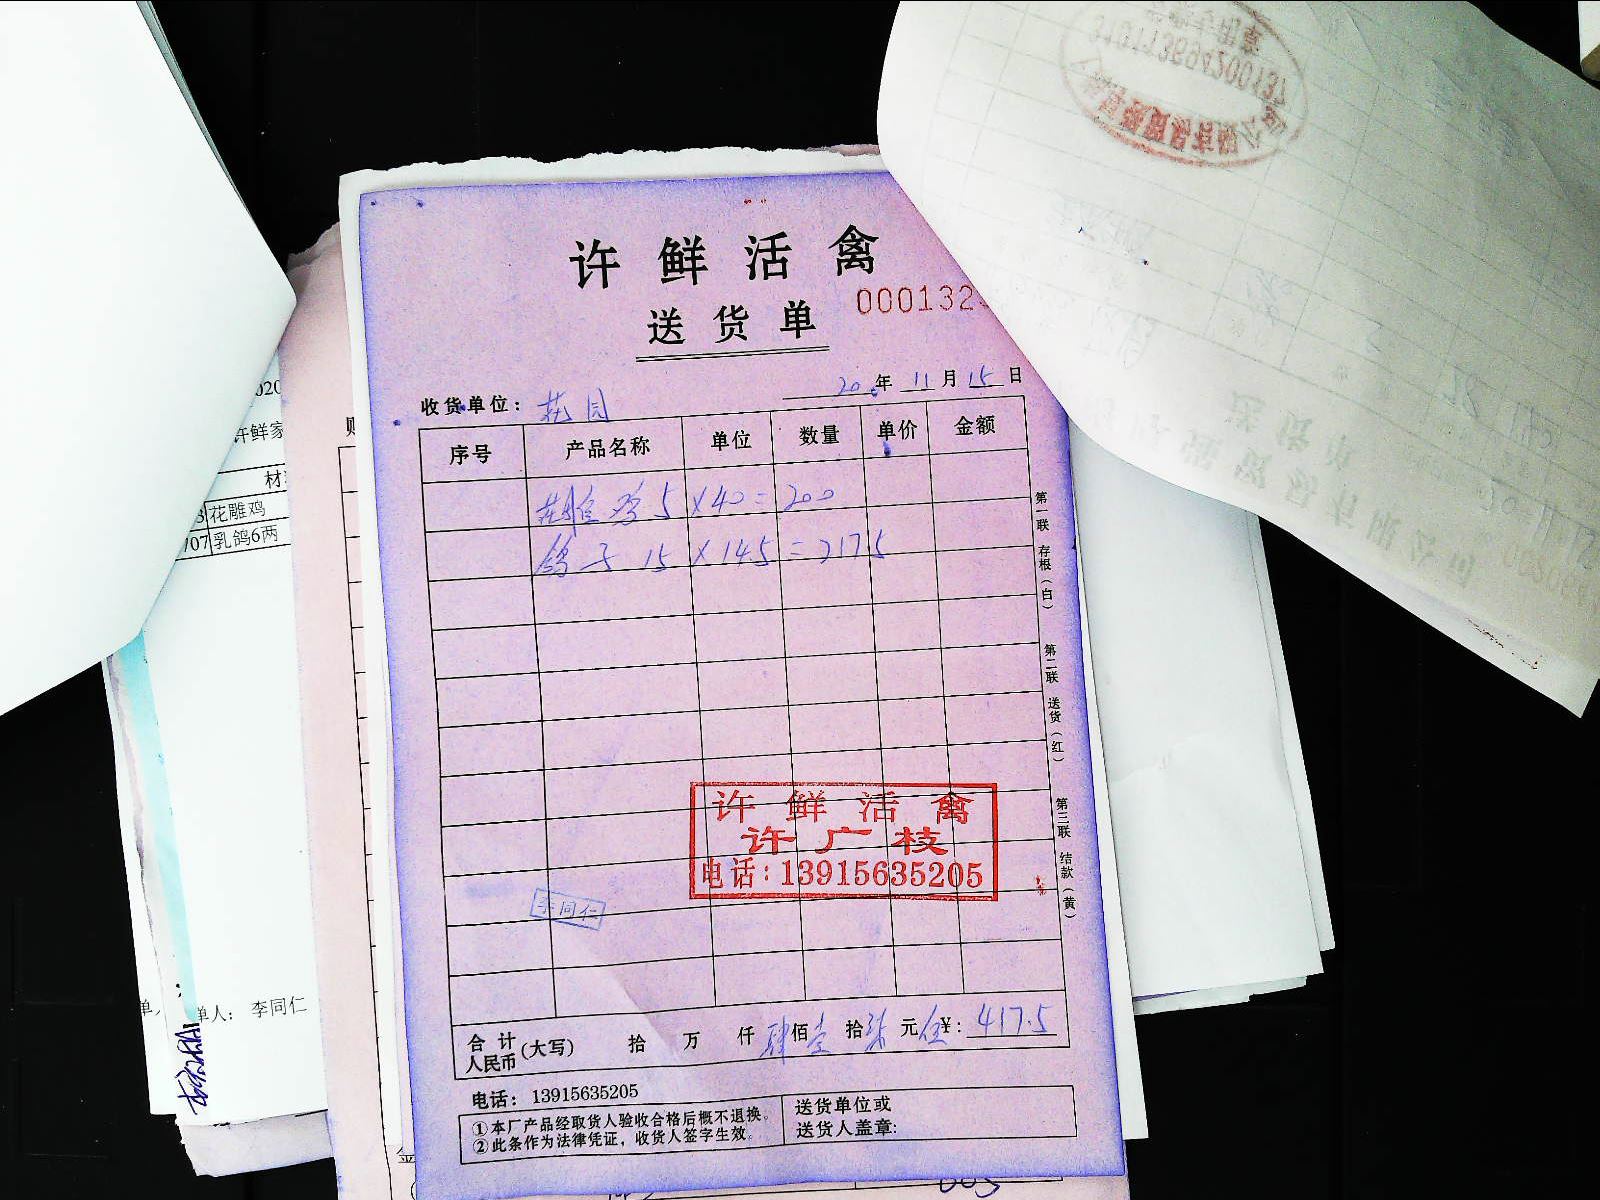 许鲜活禽
送货单
000132
收货单位：花园
20 年 11 月 15 日
序号 产品名称 单位 数量 单价 金额
花雕鸡 5 × 40 = 200
鸽子 15 × 14.5 = 217.5
第一联 存根（白）
第二联 送货（红）
第三联 结款（黄）
许鲜活禽
许广枝
电话：13915635205
李同仁
合计人民币（大写） 拾 万 仟 肆佰壹拾柒元伍 ¥：417.5
电话：13915635205
①本厂产品经取货人验收合格后概不退换。
②此条作为法律凭证，收货人签字生效。
送货单位或
送货人盖章:
020
许鲜家
材
花雕鸡
07 乳鸽6两
单人：李同仁